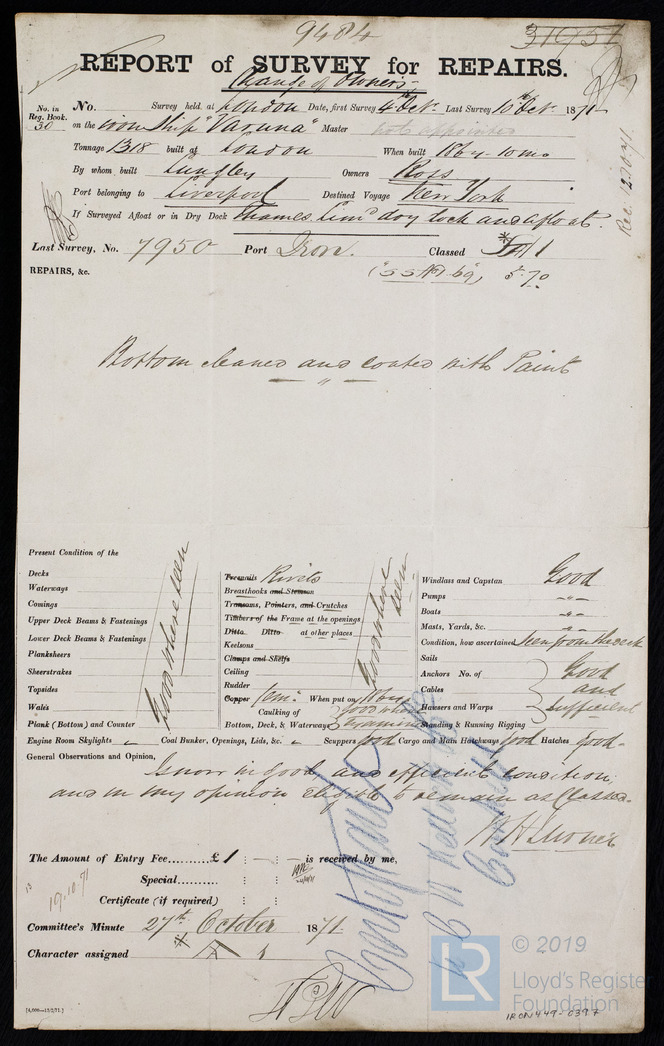 9484
31951
REPORT of SURVEY for REPAIRS.
Change of Owners
No. in Reg. Book. 30
No. Survey held at London Date, first Survey 4 Oct. Last Survey 10 Oct. 1871
on the iron Ship "Varuna" Master not appointed
Tonnage 1318 built at London When built 1864 - 10 mo
By whom built Langley Owners Ross
Port belonging to Liverpool Destined Voyage New York
If Surveyed Afloat or in Dry Dock Thames dry dock and afloat.
Rec. 12/10/71
Last Survey, No. 7950 Port Iron. Classed A 1
REPAIRS, &c.
Bottom cleaned and coated with Paint
Present Condition of the
Decks
Waterways
Comings
Upper Deck Beams & Fastenings
Lower Deck Beams & Fastenings
Planksheers
Sheerstrakes
Topsides
Wales
Plank (Bottom) and Counter
Good where seen
Treenails Rivets
Breasthooks and Stemson
Transoms, Pointers, and Crutches
Timbers of the Frame at the openings
Ditto Ditto at other places
Keelsons
Clamps and Shelfs
Ceiling
Rudder
Copper Cem. When put on
Caulking of Bottom, Deck, & Waterways Good where Examined
Good where seen
Windlass and Capstan Good
Pumps "
Boats "
Masts, Yards, &c. "
Condition, how ascertained Seen from the deck
Sails
Anchors No. of
Cables
Hawsers and Warps
Standing & Running Rigging
Good and sufficient
Engine Room Skylights Coal Bunker, Openings, Lids, &c. Scuppers good Cargo and Main Hatchways good Hatches good
General Observations and Opinion,
Is now in good and efficient condition,
and in my opinion eligible to remain as Classed.
The Amount of Entry Fee.........£ 1 : - : - is received by me,
Special............ : :
Certificate (if required) : :
19.10.71
Committee's Minute 27th October 1871.
Character assigned A 1
[4,000—13/2/71.]
LR © 2019
Lloyd's Register
Foundation
IRON449-0397